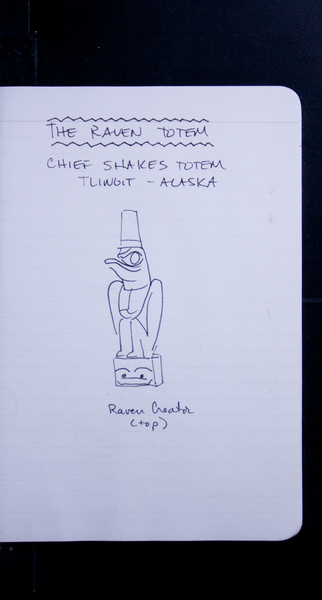 THE RAVEN TOTEM
CHIEF SHAKES TOTEM
TLINGIT - ALASKA
Raven Creator
(top)